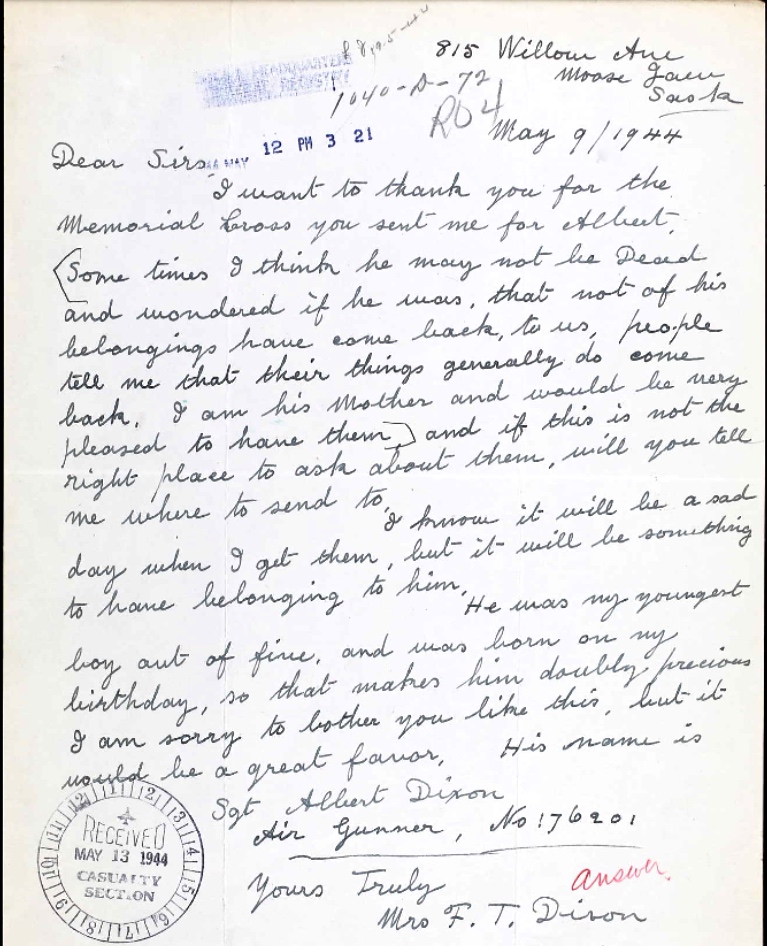 815 Willow Ave
Moose Jaw
Sask
R.C.A.F. HEADQUARTERS
CENTRAL REGISTRY
1040-D-72
R04
May 9/1944
'44 MAY 12 PM 3 21
Dear Sirs
I want to thank you for the
Memorial Cross you sent me for Albert.
Some times I think he may not be Dead
and wondered if he was, that not of his
belongings have come back, to us, people
tell me that their things generally do come
back. I am his Mother and would be very
pleased to have them, and if this is not the
right place to ask about them, will you tell
me where to send to.
I know it will be a sad
day when I get them, but it will be something
to have belonging to him.
He was my youngest
boy out of five, and was born on my
birthday, so that makes him doubly precious
I am sorry to bother you like this, but it
would be a great favor. His name is
Sgt Albert Dixon
Air Gunner, No: 76201
Answer.
Yours Truly
Mrs F. T. Dixon
RECEIVED
MAY 13 1944
CASUALTY
SECTION